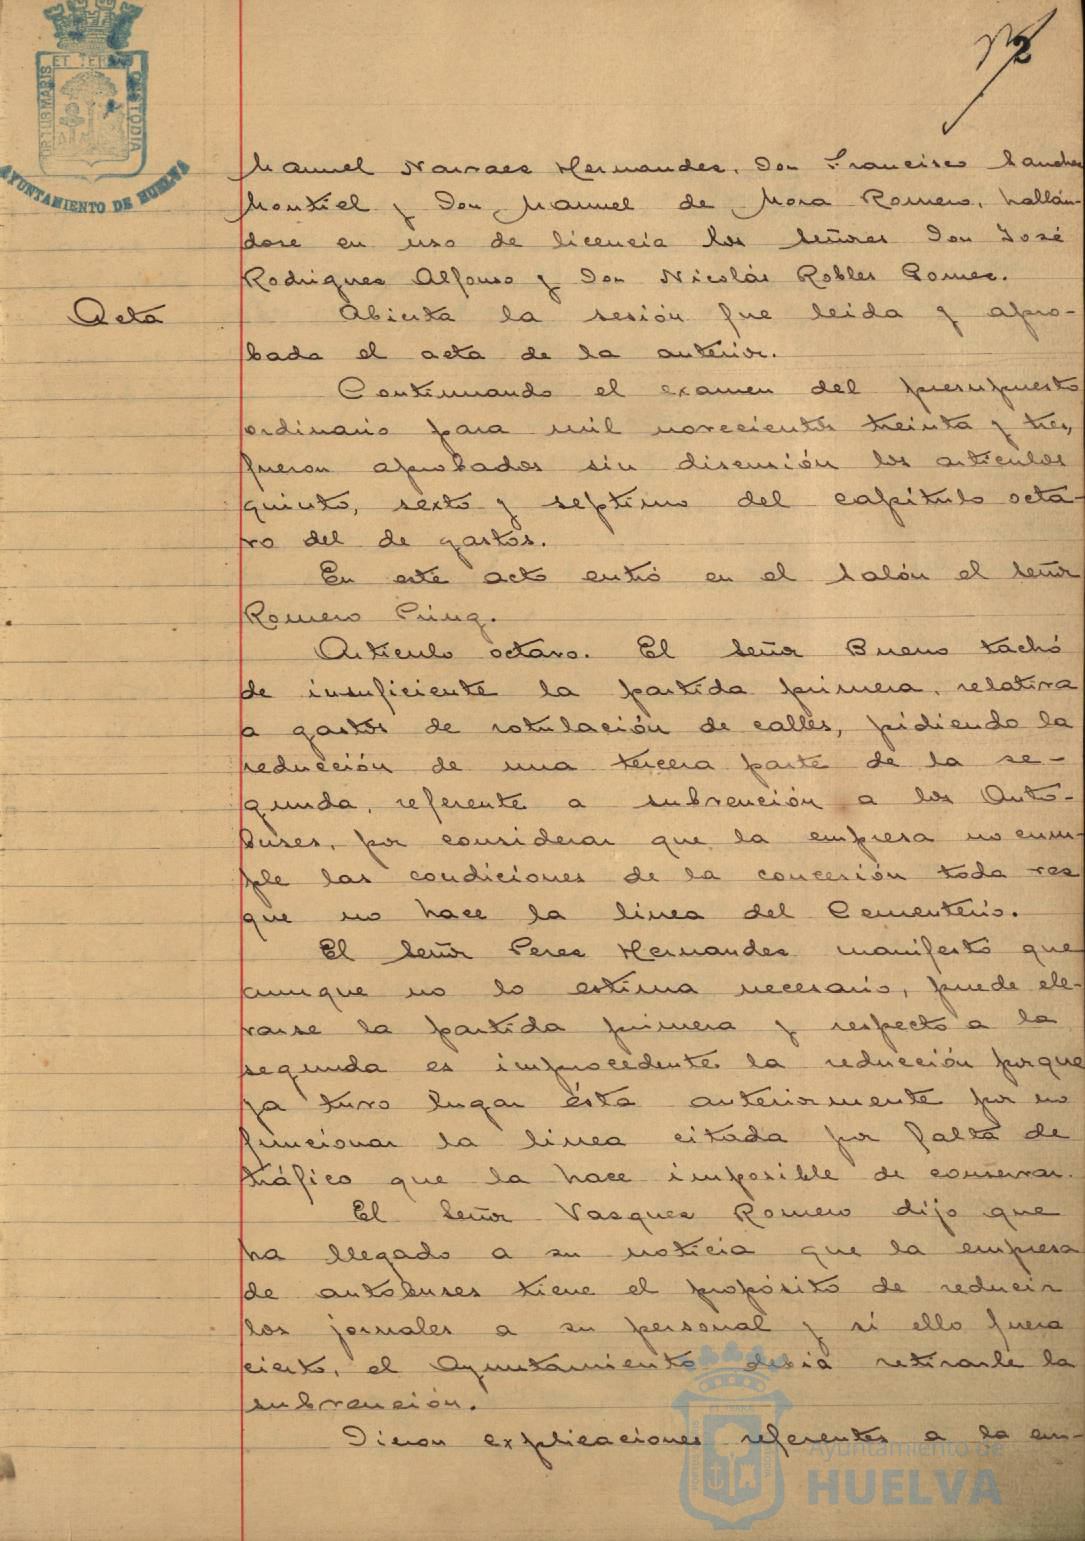 2
PORTUS MARIS ET TERRAE CUSTODIA
AYUNTAMIENTO DE HUELVA
Manuel Narvaez Hernandez, Don Francisco Sanchez
Montiel y Don Manuel de Mora Romero, hallán-
dose en uso de licencia los señores Don José
Rodriguez Alfonso y Don Nicolás Robles Gomez.
Acta
Abierta la sesión fue leida y apro-
bada el acta de la anterior.
Continuando el examen del presupuesto
ordinario para mil novecientos treinta y tres,
fueron aprobados sin discusión los articulos
quinto, sexto y septimo del capítulo octa-
vo del de gastos.
En este acto entró en el Salón el Señor
Romero Pring.
Articulo octavo. El Señor Bueno tachó
de insuficiente la partida primera, relativa
a gastos de rotulación de calles, pidiendo la
reducción de una tercera parte de la se-
gunda, referente a subvención a los Auto-
buses, por considerar que la empresa no cum-
ple las condiciones de la concesión toda vez
que no hace la linea del Cementerio.
El Señor Perez Hernandez manifestó que
aunque no lo estima necesario, puede ele-
varse la partida primera y respecto a la
segunda es improcedente la reducción porque
ya tuvo lugar ésta anteriormente por no
funcionar la linea citada por falta de
tráfico que la hace imposible de conservar.
El Señor Vasquez Romero dijo que
ha llegado a su noticia que la empresa
de autobuses tiene el propósito de reducir
los jornales a su personal y si ello fuera
cierto, el Ayuntamiento debia retirarle la
subvención.
Dieron explicaciones referentes a la em-
Ayuntamiento de
HUELVA